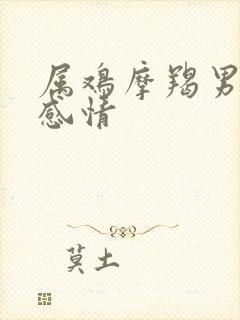 属鸡摩羯男
感情
莫土